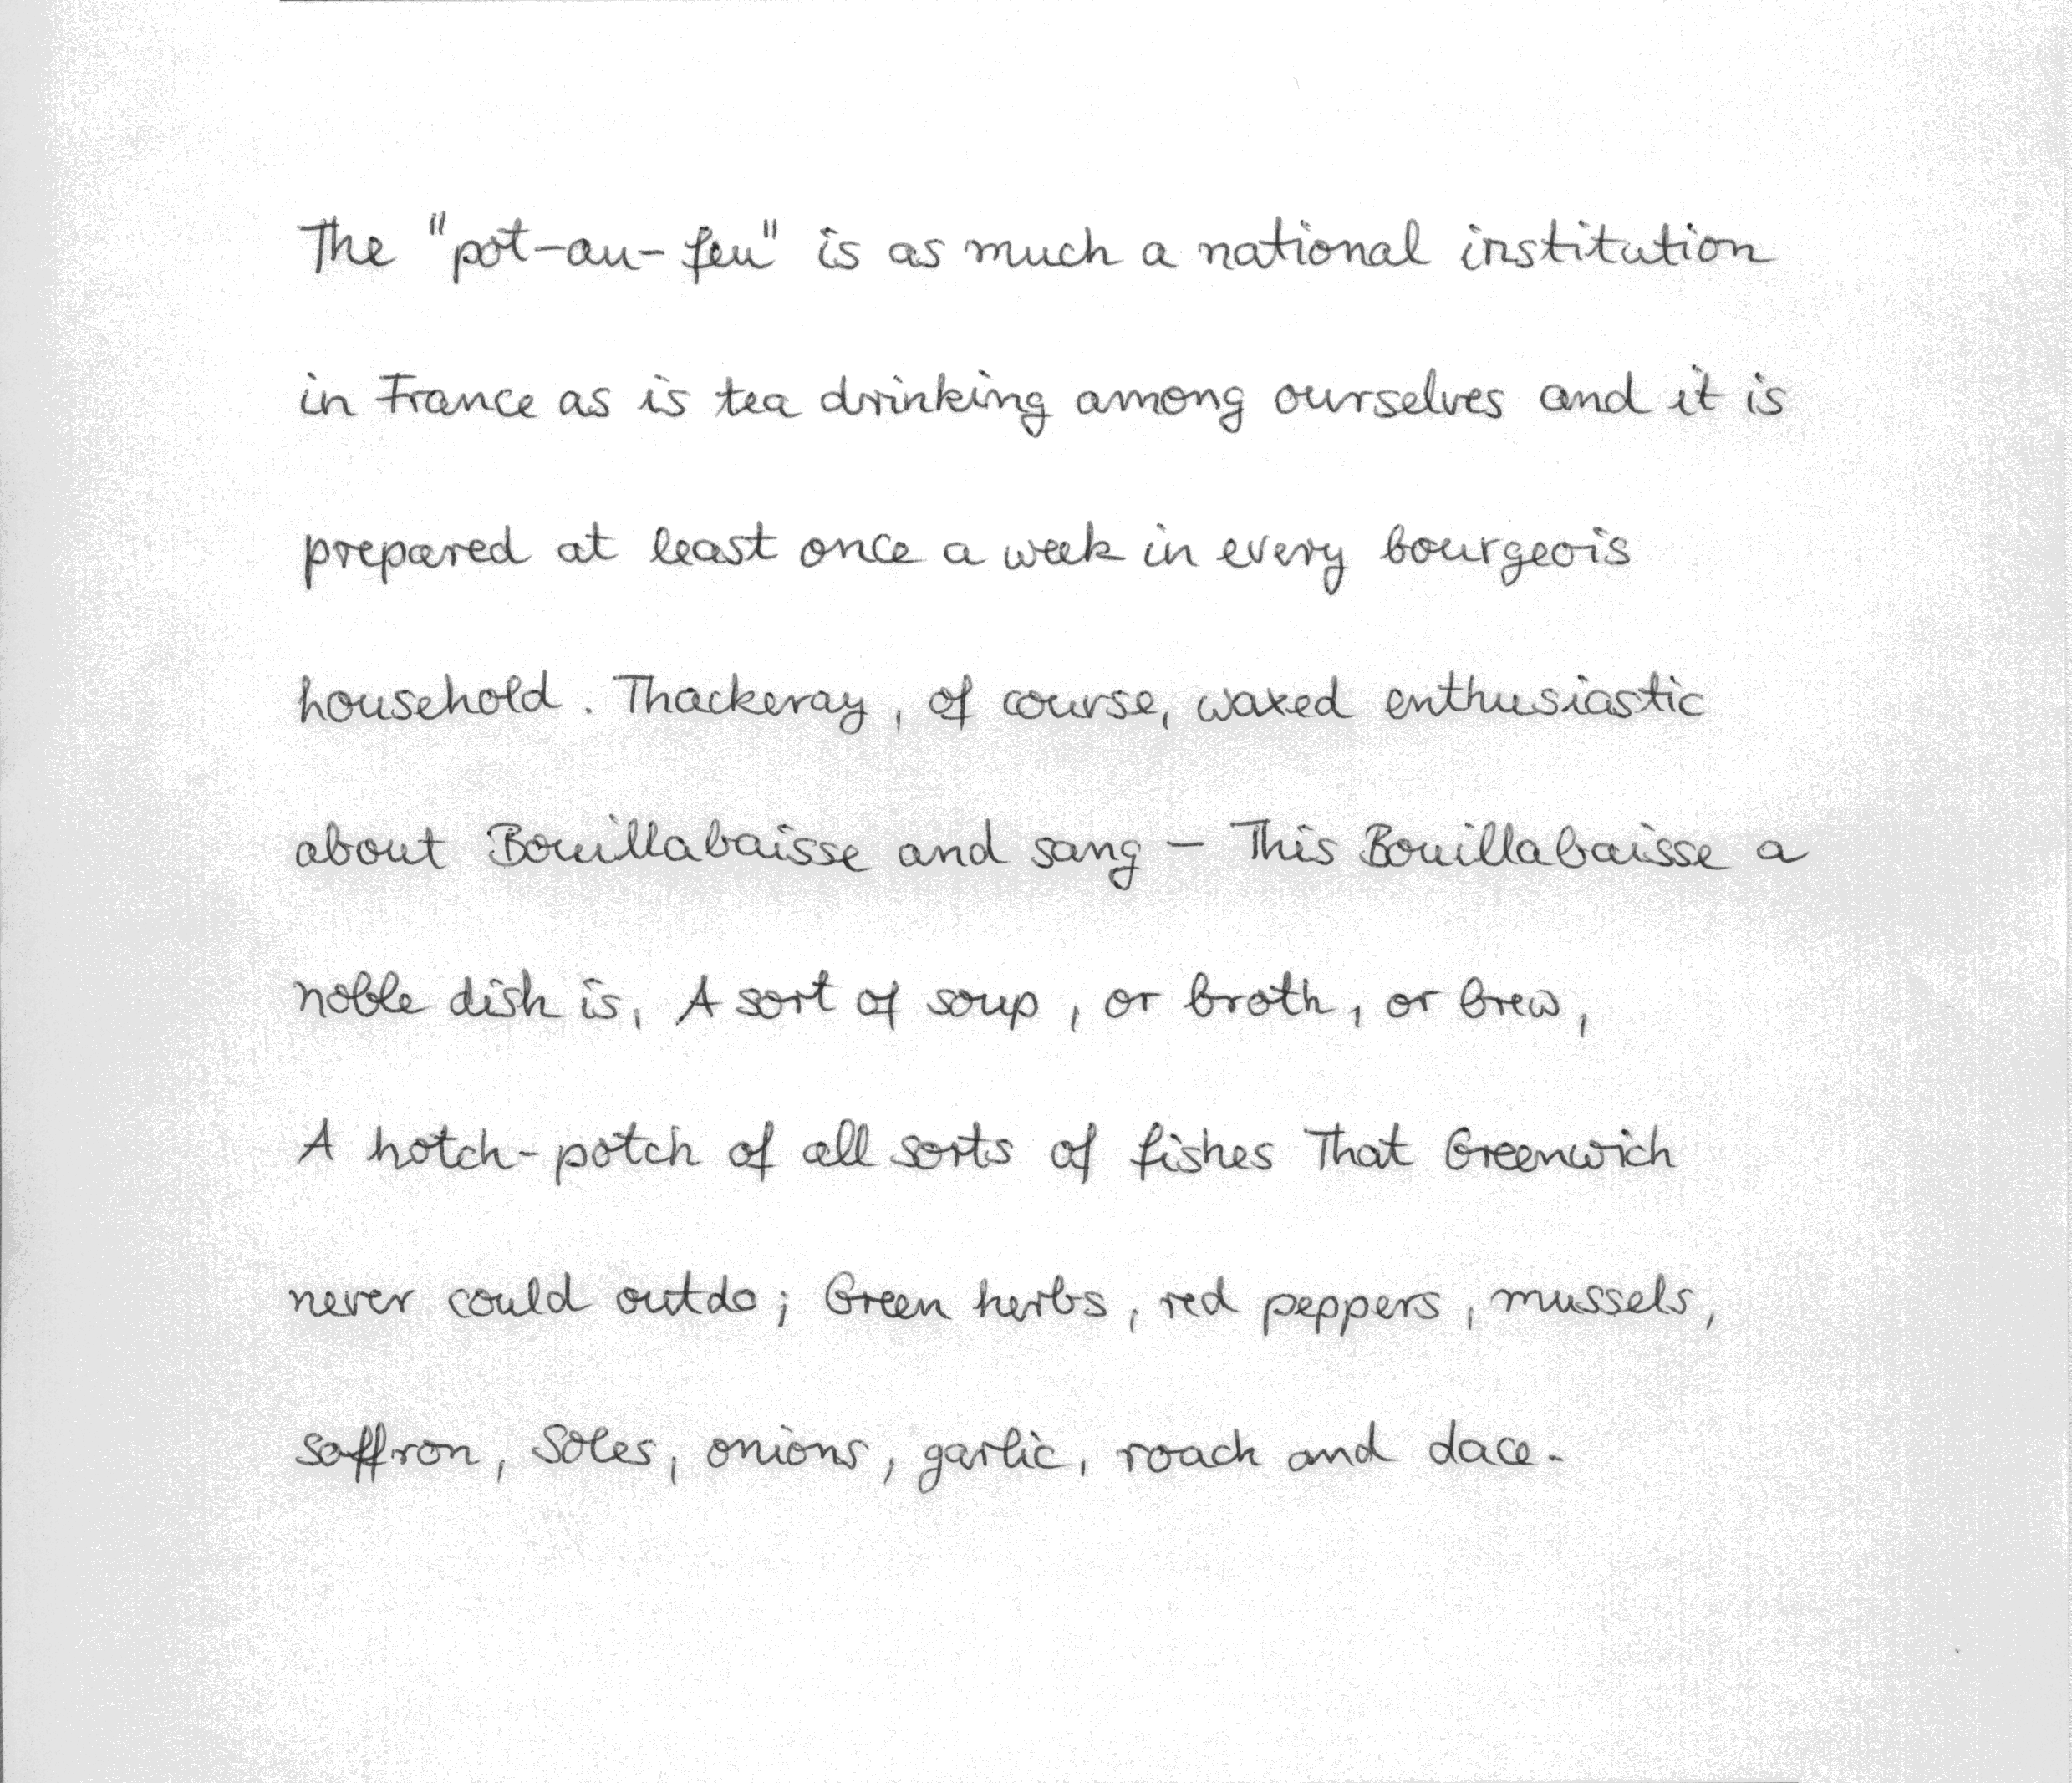 The "pot-au-feu" is as much a national institution
in France as is tea drinking among ourselves and it is
prepared at least once a week in every bourgeois
household. Thackeray, of course, waxed enthusiastic
about Bouillabaisse and sang - This Bouillabaisse a
noble dish is, A sort of soup, or broth, or brew,
A hotch-potch of all sorts of fishes That Greenwich
never could outdo; Green herbs, red peppers, mussels,
saffron, Soles, onions, garlic, roach and dace.